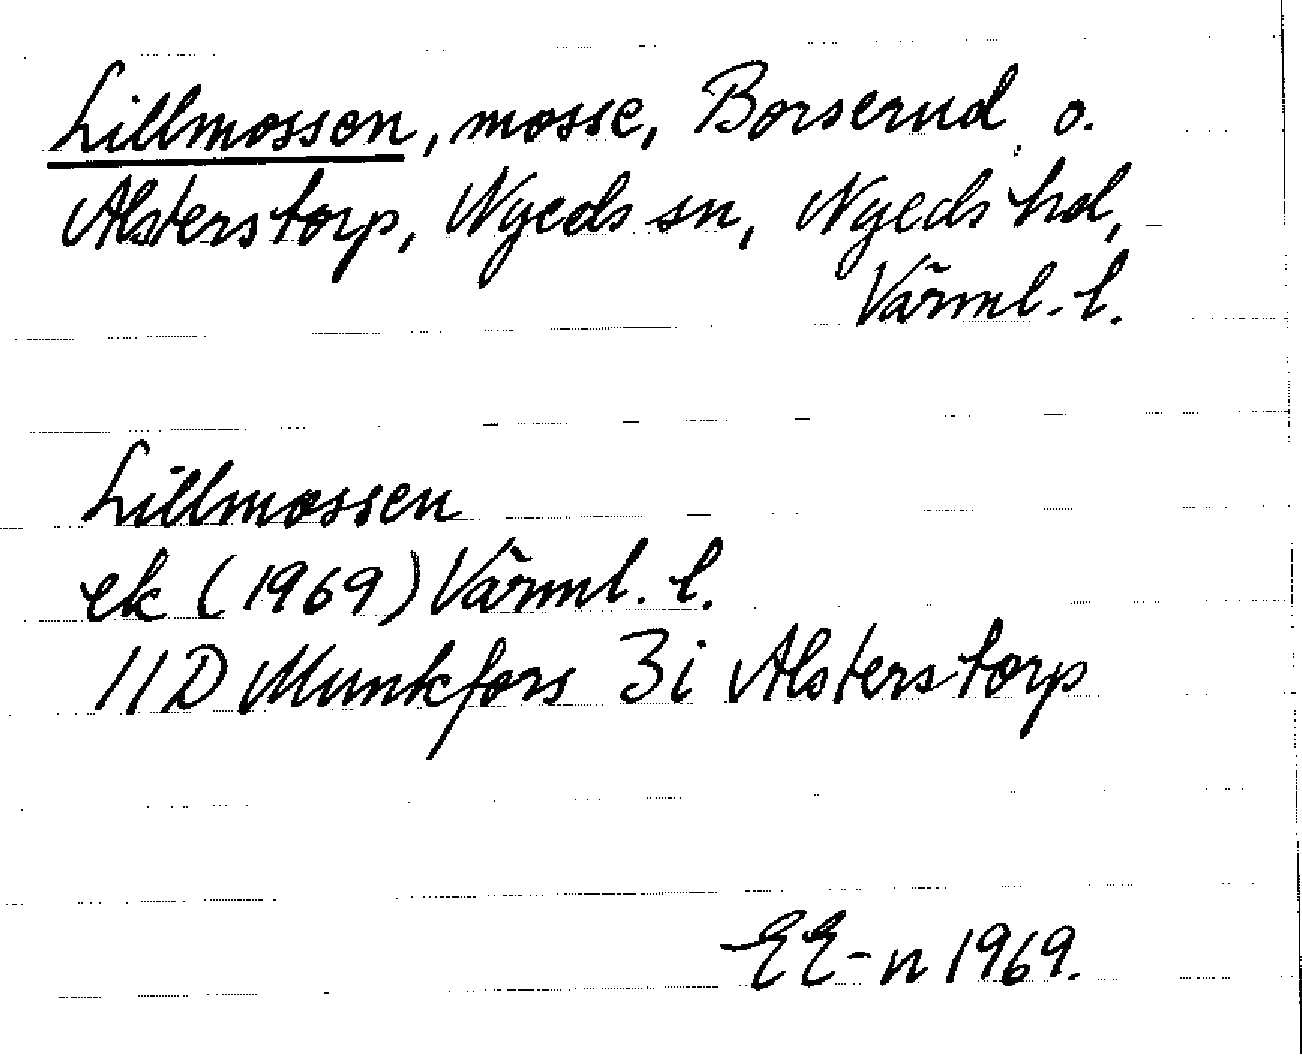 Lillmossen, mosse, Borserud o.
Alsterstorp, Nyeds sn, Nyeds hd,
Värml. l.
Lillmossen
ek (1969) Värml. l.
11D Munkfors 3i Alsterstorp
EE-n 1969.